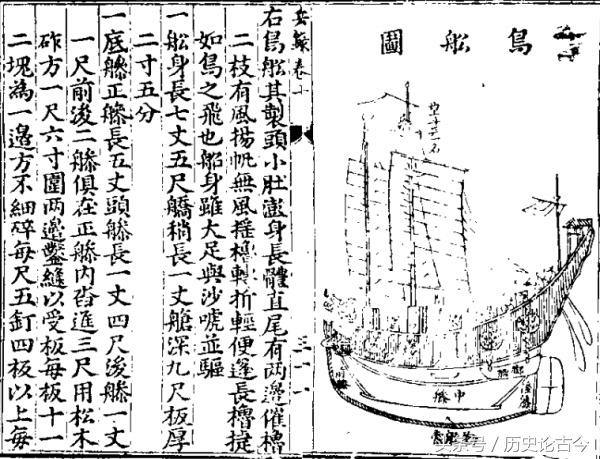 鳥船圖
兵錄卷十
右鳥船其製頭小肚澎身長體直尾有兩邊催櫓
二枝有風揚帆無風搖櫓轉折輕便篷長櫓捷
如鳥之飛也船身雖大足與沙唬並驅
一船身長七丈五尺稍長一丈艙深九尺板厚
二寸五分
一底正長五丈頭長一丈四尺後一丈
一尺前後二俱在正內沓進三尺用松木
砟方一尺六寸圍兩邊鑿縫以受板每板十一
二塊為一邊方不細碎每尺五釘四板以上每
三一一
中
头条号 / 历史论古今